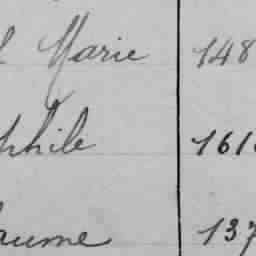 Marie 148
phile 161
aume 137